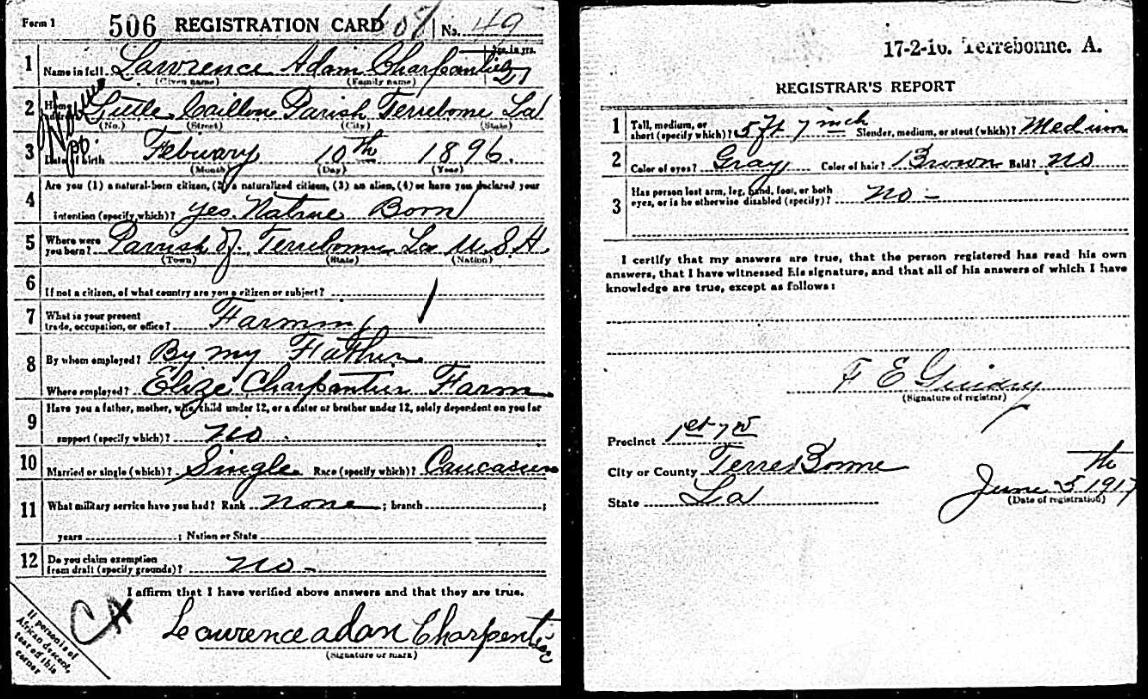 Form 1 506 REGISTRATION CARD No. 49
Age, in yrs.
1 Name in full Lawrence Adam Charpentier 21
(Given name) (Family name)
2 Home address Little Caillou Parish Terrebonne La
(No.) (Street) (City) (State)
3 Date of birth Febuary 10th 1896.
(Month) (Day) (Year)
4 Are you (1) a natural-born citizen, (2) a naturalized citizen, (3) an alien, (4) or have you declared your
intention (specify which)? yes. Native Born
5 Where were you born? Parrish of Terrebonne La U S A.
(Town) (State) (Nation)
6 If not a citizen, of what country are you a citizen or subject?
7 What is your present
trade, occupation, or office?
8 By whom employed? By my Father
Where employed? Elize Charpentier Farm
9 Have you a father, mother, wife, child under 12, or a sister or brother under 12, solely dependent on you for
support (specify which)? no.
10 Married or single (which)? Single. Race (specify which)? Caucasian
11 What military service have you had? Rank none ; branch ;
years ; Nation or State
12 Do you claim exemption
from draft (specify grounds)? no -
I affirm that I have verified above answers and that they are true.
Lawrence adam Charpentier
(Signature or mark)
If person is of
African descent,
tear off this
corner
17-2-16. Terrebonne. A.
REGISTRAR'S REPORT
1 Tall, medium, or
short (specify which)? 5 ft 7 inch Slender, medium, or stout (which)? Medium
2 Color of eyes? Gray Color of hair? Brown Bald? No
3 Has person lost arm, leg, hand, foot, or both
eyes, or is he otherwise disabled (specify)? no -
I certify that my answers are true, that the person registered has read his own
answers, that I have witnessed his signature, and that all of his answers of which I have
knowledge are true, except as follows:
F E Guidry
(Signature of registrar)
Precinct 1st 7 W
City or County TerresBonne
State La
June 5th 1917
(Date of registration)